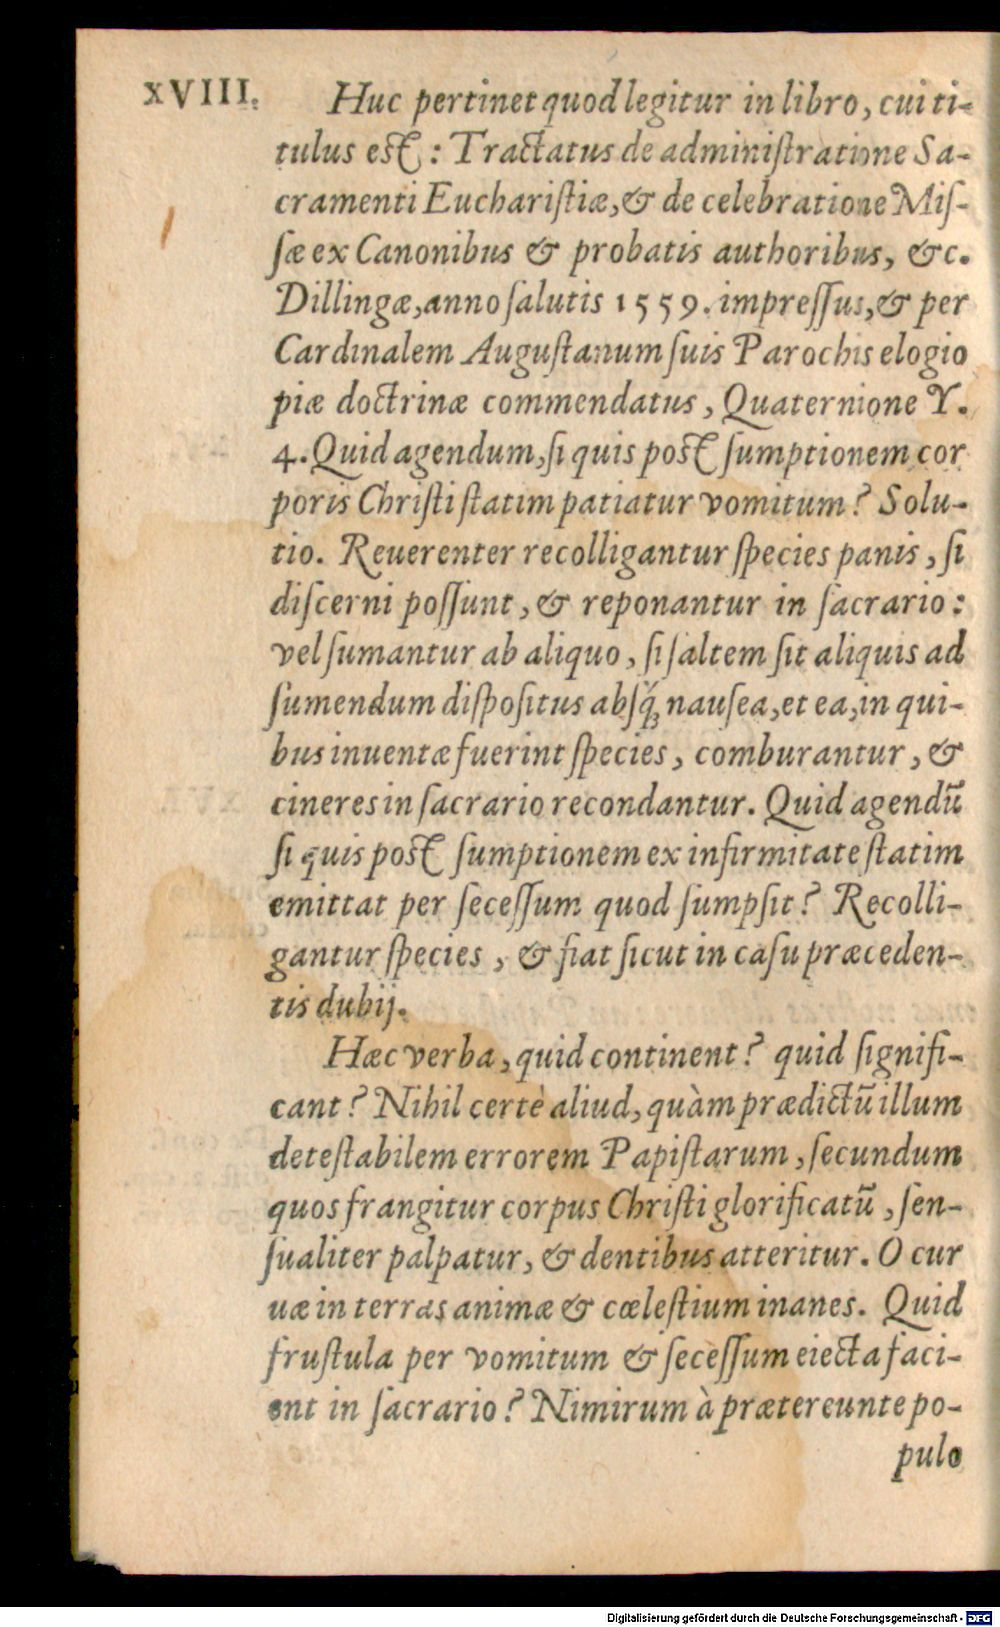 XVIII. Huc pertinet quod legitur in libro, cui ti-
tulus est : Tractatus de adminiſtratione Sa-
cramenti Euchariſtiæ, & de celebratione Miſ-
ſæ ex Canonibus & probatis authoribus, &c.
Dillingæ, anno ſalutis 1559. impreſſus, & per
Cardinalem Auguſtanum ſuis Parochis elogio
piæ doctrinæ commendatus, Quaternione Y.
4. Quid agendum, ſi quis post ſumptionem cor
poris Chriſti ſtatim patiatur vomitum? Solu-
tio. Reuerenter recolligantur ſpecies panis, ſi
diſcerni poſſunt, & reponantur in ſacrario:
vel ſumantur ab aliquo, ſi ſaltem ſit aliquis ad
ſumendum diſpoſitus abſq́; nauſea, et ea, in qui-
bus inuentæ fuerint ſpecies, comburantur, &
cineres in ſacrario recondantur. Quid agendũ
ſi quis post ſumptionem ex infirmitate ſtatim
emittat per ſeceſſum quod ſumpſit? Recolli-
gantur ſpecies, & fiat ſicut in caſu præceden-
tis dubij.
Hæc verba, quid continent? quid ſignifi-
cant? Nihil certè aliud, quàm prædictũ illum
deteſtabilem errorem Papiſtarum, ſecundum
quos frangitur corpus Chriſti glorificatũ, ſen-
ſualiter palpatur, & dentibus atteritur. O cur
uæ in terras animæ & cœleſtium inanes. Quid
fruſtula per vomitum & ſeceſſum eiecta faci-
ent in ſacrario? Nimirum à prætereunte po-
pulo
Digitalisierung gefördert durch die Deutsche Forschungsgemeinschaft - DFG